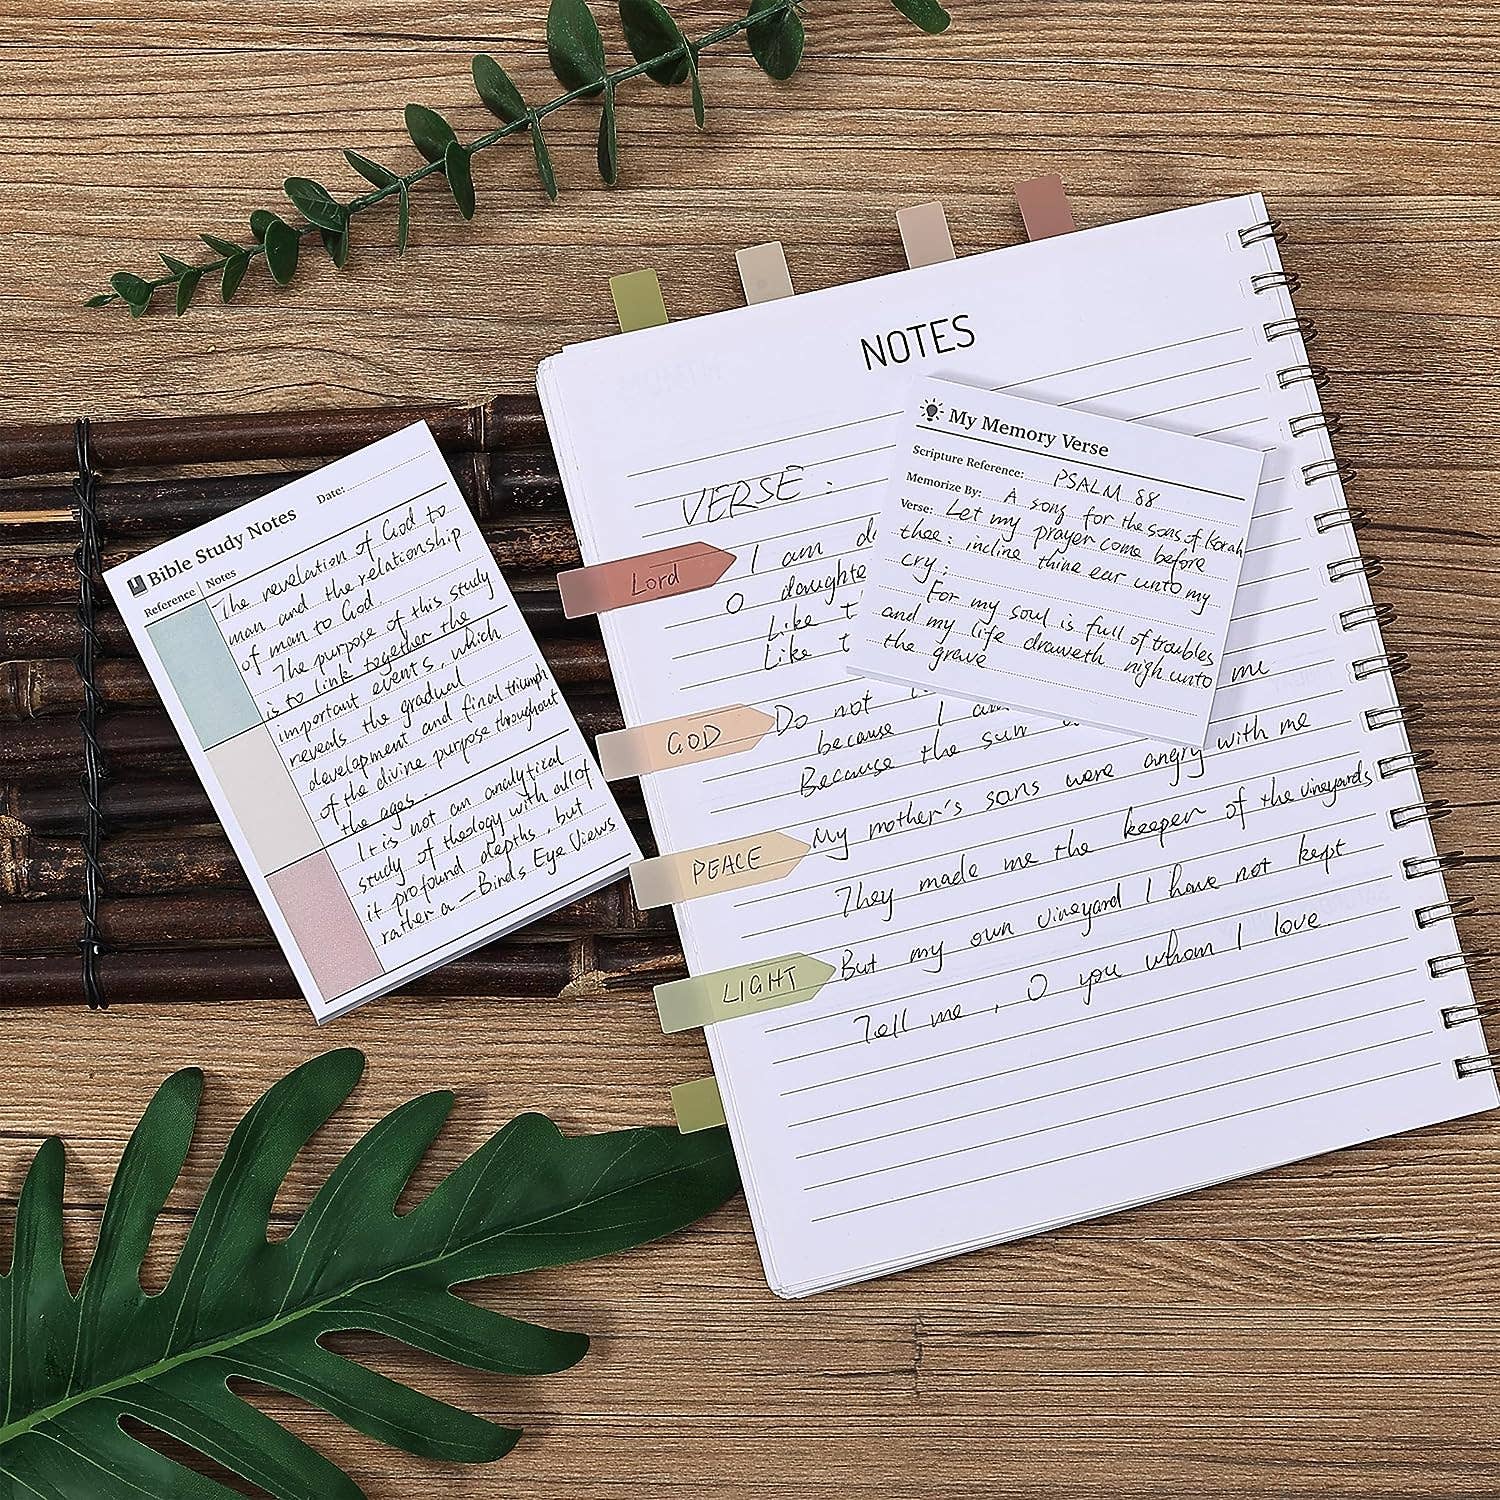 NOTES
VERSE:
I am d
O daughte
Like t
Like t
me
Do not
because I am
Because the sun
My mother's sons were angry with me
They made me the keeper of the vineyards
But my own vineyard I have not kept
Tell me, O you whom I love.
Lord
GOD
PEACE
LIGHT
My Memory Verse
Scripture Reference: PSALM 88
Memorize By: A song for the sons of Korah
Verse: Let my prayer come before
thee: incline thine ear unto my
cry:
For my soul is full of troubles
and my life draweth nigh unto
the grave
Bible Study Notes
Date:
Reference Notes
The revelation of God to
man and the relationship
of man to God.
The purpose of this study
is to link together the
important events, which
reveals the gradual
development and final triumph
of the divine purpose throughout
the ages.
It is not an analytical
study of theology with all of
it profound depths, but
rather a — Birds Eye Views